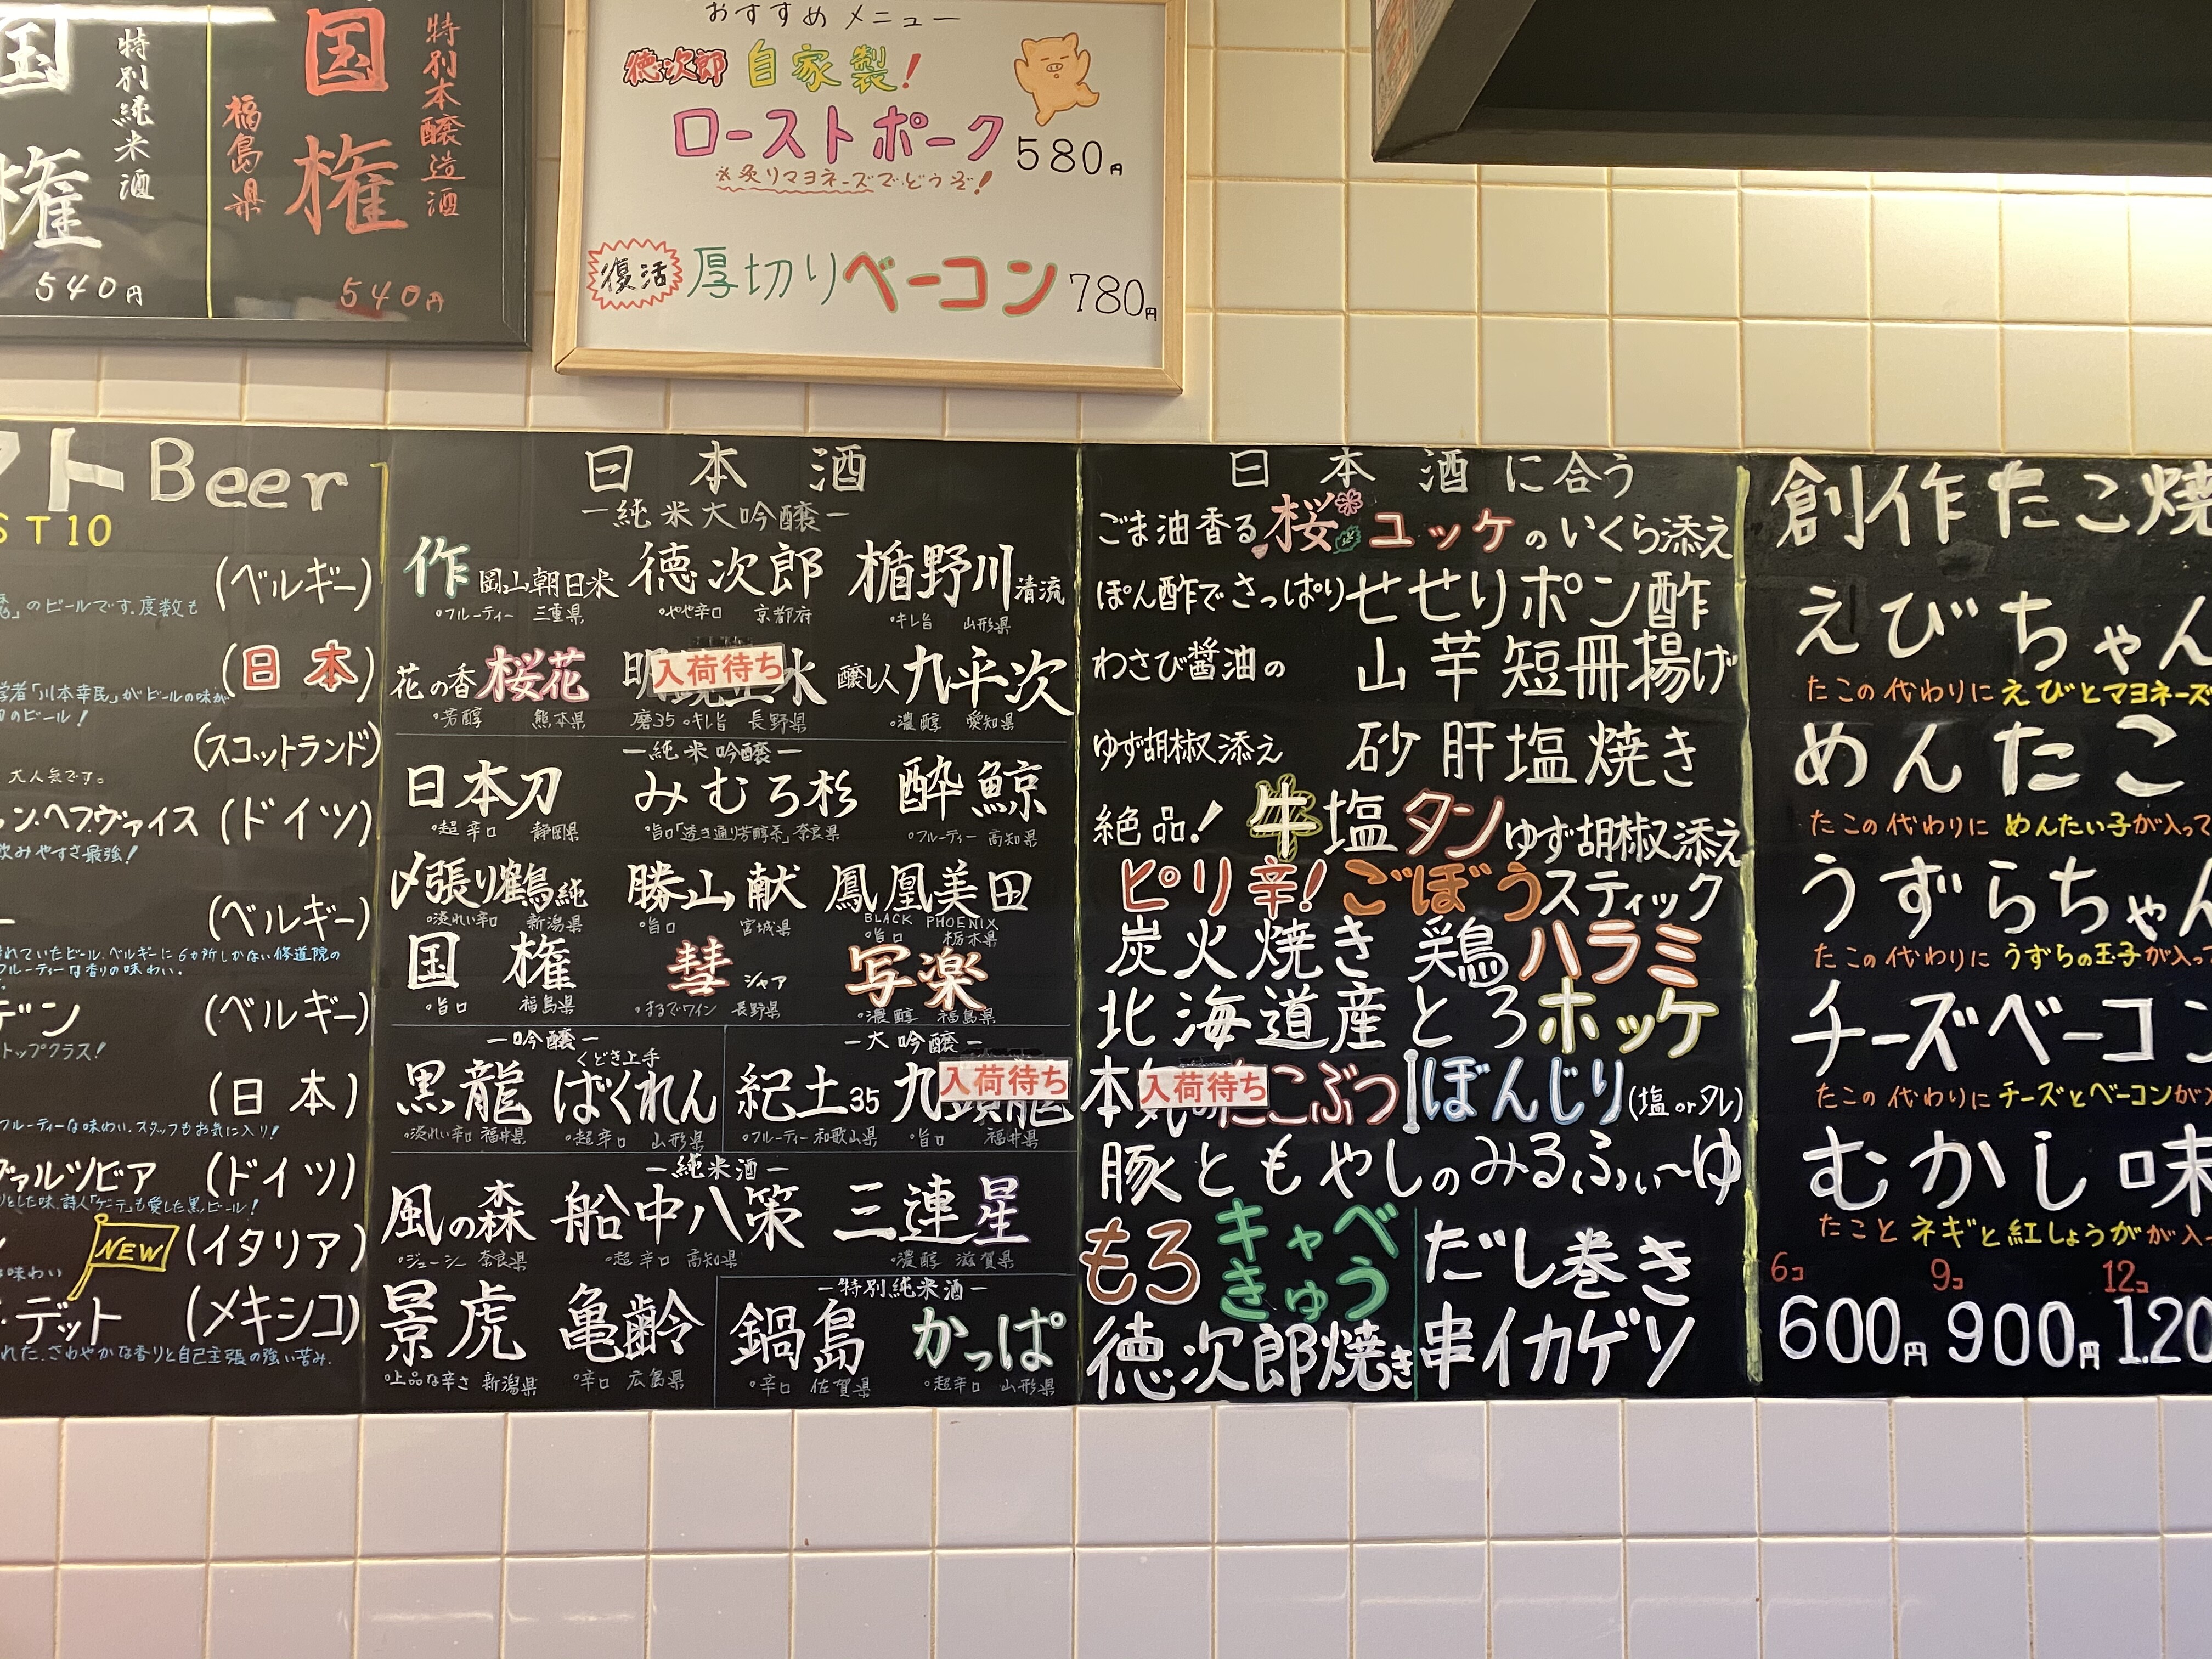 国権
特別純米酒
540円
国権
特別本醸造酒
福島県
540円
おすすめメニュー
徳次郎 自家製!
ローストポーク 580円
※炙りマヨネーズでどうぞ!
復活 厚切りベーコン 780円
ト Beer
ST10
(ベルギー)
のビールです。度数も
(日本)
学者「川本幸民」がビールの味が
のビール!
(スコットランド)
大人気です。
ン・ヘフヴァイス (ドイツ)
飲みやすさ最強!
(ベルギー)
れていたビール。ベルギーに6カ所しかない修道院の
フルーティーな香りの味わい。
デン (ベルギー)
トップクラス!
(日本)
フルーティーな味わい。スタッフもお気に入り!
ヴァルツビア (ドイツ)
とした味。詩人「ゲーテ」も愛した黒ビール!
NEW (イタリア)
味わい
・デット (メキシコ)
れた、さわやかな香りと自己主張の強い苦み。
日本酒
ー純米大吟醸ー
作 岡山朝日米 徳次郎 楯野川 清流
フルーティー 三重県 やや辛口 京都府 キレ旨 山形県
花の香 桜花 明 入荷待ち 水 醸し人九平次
芳醇 熊本県 磨35 キレ旨 長野県 濃醇 愛知県
ー純米吟醸ー
日本刀 みむろ杉 酔鯨
超辛口 静岡県 旨口「透き通り芳醇系」奈良県 フルーティー 高知県
〆張り鶴 純 勝山 献 鳳凰美田
淡れい辛口 新潟県 旨口 宮城県 BLACK PHOENIX
旨口 栃木県
国権 彗 シャア 写楽
旨口 福島県 まるでワイン 長野県 濃醇 福島県
ー吟醸ー
くどき上手
黒龍 ばくれん
淡れい辛口 福井県 超辛口 山形県
ー大吟醸ー
紀土35 九 入荷待ち
フルーティー 和歌山県 旨口 福井県
ー純米酒ー
風の森 船中八策 三連星
ジューシー 奈良県 超辛口 高知県 濃醇 滋賀県
景虎 亀齢
上品な辛さ 新潟県 辛口 広島県
ー特別純米酒ー
鍋島 かっぱ
辛口 佐賀県 超辛口 山形県
日本酒に合う
ごま油香る桜ユッケのいくら添え
ぽん酢でさっぱりせせりポン酢
わさび醤油の 山芋短冊揚げ
ゆず胡椒添え 砂肝塩焼き
絶品!牛塩タンゆず胡椒添え
ピリ辛!ごぼうスティック
炭火焼き鶏ハラミ
北海道産とろホッケ
本 入荷待ち こぶつ ぼんじり(塩orタレ)
豚ともやしのみるふぃ〜ゆ
もろ キャベ きゅう だし巻き
徳次郎焼き 串イカゲソ
創作たこ焼
えびちゃん
たこの代わりにえびとマヨネーズ
めんたこ
たこの代わりにめんたい子が入って
うずらちゃん
たこの代わりにうずらの玉子が入っ
チーズベーコン
たこの代わりにチーズとベーコンが
むかし味
たことネギと紅しょうがが入
6コ 9コ 12コ
600円 900円 1.20